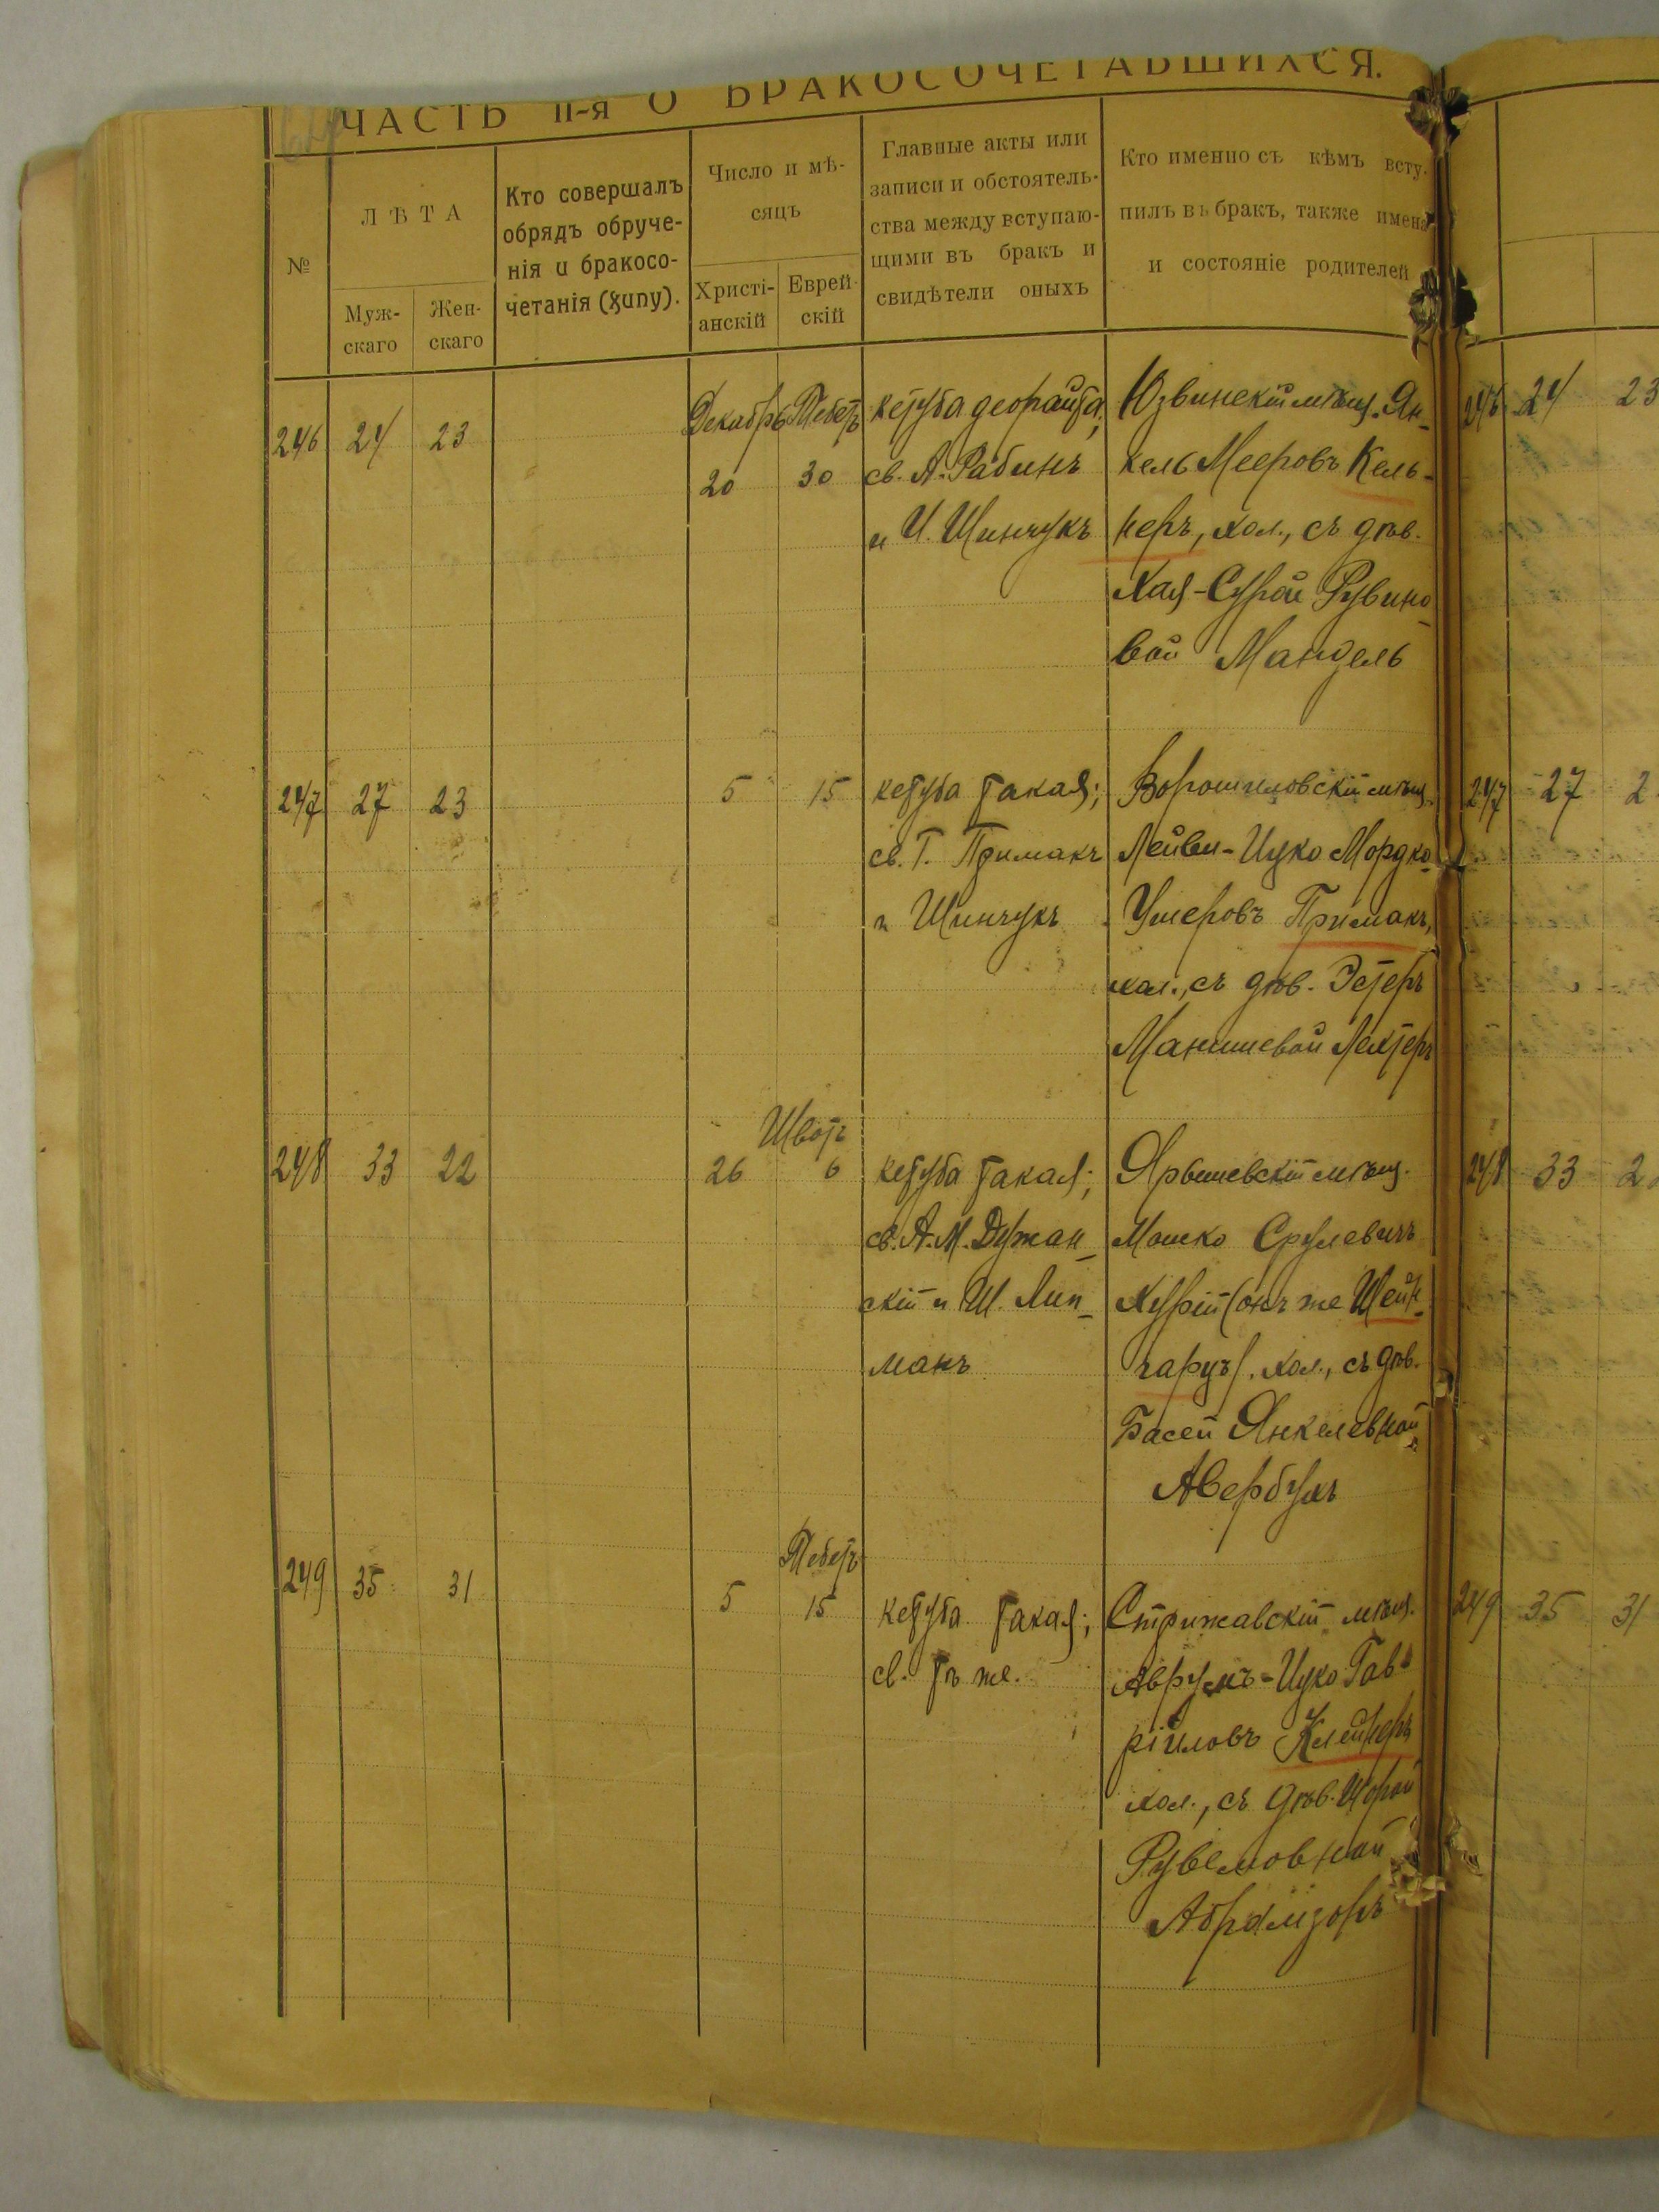 ЧАСТЬ II-я О БРАКОСОЧЕТАВШИХСЯ.
№
ЛѢТА
Муж-
скаго
Жен-
скаго
Кто совершалъ
обрядъ обруче-
нія и бракосо-
четанія (хупу).
Число и мѣ-
сяцъ
Христі-
анскій
Еврей-
скій
Главные акты или
записи и обстоятель-
ства между вступаю-
щими въ бракъ и
свидѣтели оныхъ
Кто именно съ кѣмъ всту-
пилъ въ бракъ, также имена
и состояніе родителей
246 24 23
Декабрь Тебетъ
20 30
кетуба деорайта;
св. А. Рабинъ
и И. Шинчукъ
Юзвинскій мѣщ. Ян-
кель Мееровъ Кель-
неръ, хол., съ дѣв.
Хая-Сурой Рувино-
вой Мандель
246 24 23
247 27 23
5 15
кетуба такая;
св. Г. Примакъ
и Шинчукъ
Ворошиловскій мѣщ.
Лейви-Ицко Мордко-
Ушеровъ Примакъ,
хол., съ дѣв. Эстеръ
Манишевой Лехтеръ
247 27 2
248 33 22
Шватъ
26 6
кетуба такая;
св. А. М. Дужан-
скій и Ш. Лип-
манъ
Ярышевскій мѣщ.
Мошко Срулевичъ
Хурій (онъ же Шейн-
царуъ), хол., съ дѣв.
Басей Янкелевной
Авербухъ
248 33 2
249 35 31
Тебетъ
5 15
кетуба такая;
св. тѣ же.
Стрижавскій мѣщ.
Аврумъ-Ицко Гав-
ріиловъ Клейнеръ
хол., съ дѣв.
Рувелювной
249 35 31